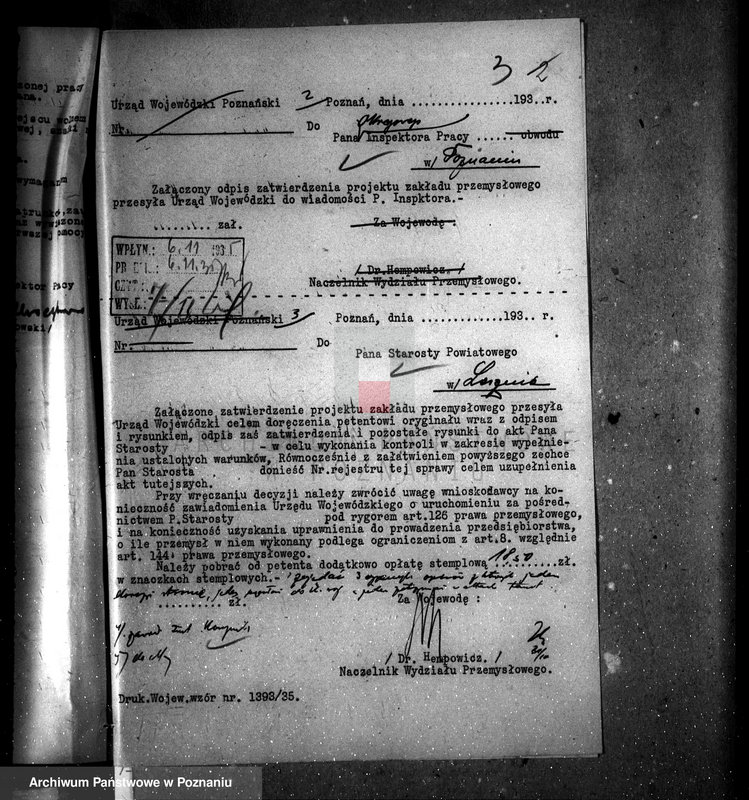 3 2
zonej pracy
Urząd Wojewódzki Poznański 2 Poznań, dnia ...............193..r.
Nr. Do Okręgowego
Pana Inspektora Pracy ...... obwodu
w/ Poznaniu
Załączony odpis zatwierdzenia projektu zakładu przemysłowego
przesyła Urząd Wojewódzki do wiadomości P. Inspktora.-
........ zał. Za Wojewodę :
WPŁYN.: 6.11 193 5
6.11.35
CZYT.:
WYSŁ.:
/ Dr.Hempowicz. /
Naczelnik Wydziału Przemysłowego.
Urząd Wojewódzki Poznański 3 Poznań, dnia .............193.. r.
Nr. Do
Pana Starosty Powiatowego
w/
Załączone zatwierdzenie projektu zakładu przemysłowego przesyła
Urząd Wojewódzki celem doręczenia petentowi oryginału wraz z odpisem
i rysunkiem, odpis zaś zatwierdzenia i pozostałe rysunki do akt Pana
Starosty - w celu wykonania kontroli w zakresie wypełnie-
nia ustalonych warunków, Równocześnie z załatwieniem powyższego zechce
Pan Starosta donieść Nr.rejestru tej sprawy celem uzupełnienia
akt tutejszych.
Przy wręczaniu decyzji należy zwrócić uwagę wnioskodawcy na ko-
nieczność zawiadomienia Urzędu Wojewódzkiego o uruchomieniu za pośred-
nictwem P.Starosty pod rygorem art.126 prawa przemysłowego,
i na konieczność uzyskania uprawnienia do prowadzenia przedsiębiorstwa,
o ile przemysł w niem wykonany podlega ograniczeniom z art.8. względnie
art. 144 prawa przemysłowego.
Należy pobrać od petenta dodatkowo opłatę stemplową 18.50 zł.
w znaczkach stemplowych.-
.......... zł. Za Wojewodę :
/ Dr. Hempowicz. /
Naczelnik Wydziału Przemysłowego.
Druk.Wojew.wzór nr. 1393/35.
Archiwum Państwowe w Poznaniu